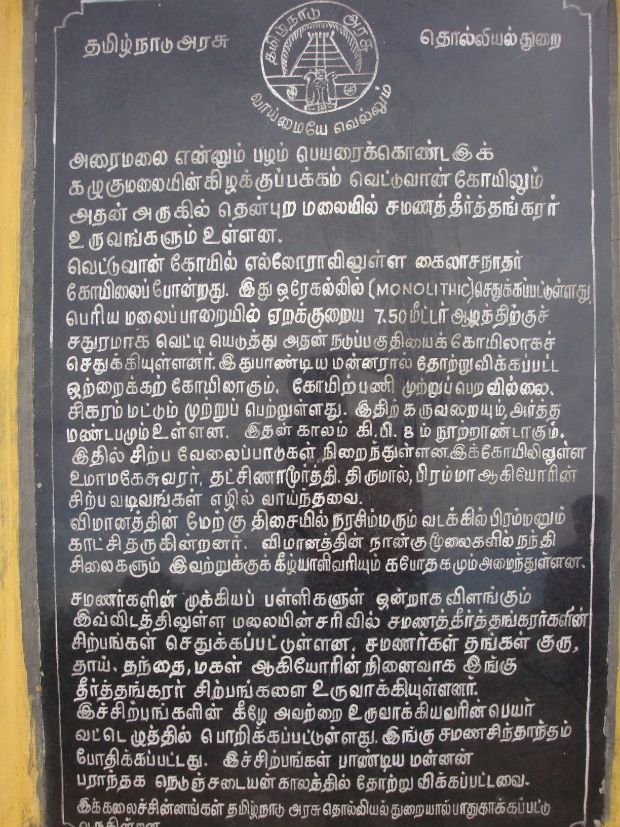 தமிழ்நாடு அரசு
தமிழ்நாடு அரசு
வாய்மையே வெல்லும்
தொல்லியல் துறை
அரைமலை என்னும் பழம் பெயரைக்கொண்ட இக்
கழுகுமலையின் கிழக்குப்பக்கம் வெட்டுவான் கோயிலும்
அதன் அருகில் தென்புற மலையில் சமணத்தீர்த்தங்கரர்
உருவங்களும் உள்ளன.
வெட்டுவான் கோயில் எல்லோராவிலுள்ள கைலாசநாதர்
கோயிலைப்போன்றது. இது ஒரேகல்லில் (MONOLITHIC) செதுக்கப்பட்டுள்ளது.
பெரிய மலைப்பாறையில் ஏறக்குறைய 7.50 மீட்டர் ஆழத்திற்குச்
சதுரமாக வெட்டி யெடுத்து அதன் நடுப்பகுதியைக் கோயிலாகச்
செதுக்கியுள்ளனர். இதுபாண்டிய மன்னரால் தோற்றுவிக்கப்பட்ட
ஒற்றைக்கற் கோயிலாகும். கோயிற்பணி முற்றுப்பெறவில்லை.
சிகரம் மட்டும் முற்றுப் பெற்றுள்ளது. இதிற் கருவறையும், அர்த்த
மண்டபமும் உள்ளன. இதன் காலம் கி.பி. 8 ம் நூற்றாண்டாகும்.
இதில் சிற்ப வேலைப்பாடுகள் நிறைந்துள்ளன. இக்கோயிலிலுள்ள
உமாமகேசுவரர், தட்சிணாமூர்த்தி. திருமால், பிரம்மா ஆகியோரின்
சிற்ப வடிவங்கள் எழில் வாய்ந்தவை.
விமானத்தின் மேற்கு திசையில் நரசிம்மரும் வடக்கில் பிரம்மனும்
காட்சிதருகின்றனர். விமானத்தின் நான்கு மூலைகளில் நந்தி
சிலைகளும் இவற்றுக்குக் கீழ்யாளிவரியும் கபோதகமும் அமைந்துள்ளன.
சமணர்களின் முக்கியப் பள்ளிகளுள் ஒன்றாக விளங்கும்
இவ்விடத்திலுள்ள மலையின் சரிவில் சமணத்தீர்த்தங்கரர்களின்
சிற்பங்கள் செதுக்கப்பட்டுள்ளன. சமணர்கள் தங்கள் குரு,
தாய். தந்தை, மகள் ஆகியோரின் நினைவாக இங்கு
தீர்த்தங்கரர் சிற்பங்களை உருவாக்கியுள்ளனர்.
இச்சிற்பங்களின் கீழே அவற்றை உருவாக்கியவரின் பெயர்
வட்டெழுத்தில் பொறிக்கப்பட்டுள்ளது. இங்கு சமணசித்தாந்தம்
போதிக்கப்பட்டது. இச்சிற்பங்கள் பாண்டிய மன்னன்
பராந்தக நெடுஞ்சடையன் காலத்தில் தோற்றுவிக்கப்பட்டவை.
இக்கலைச்சின்னங்கள் தமிழ்நாடு அரசு தொல்லியல் துறையால் பாதுகாக்கப்பட்டு
வருகின்றன